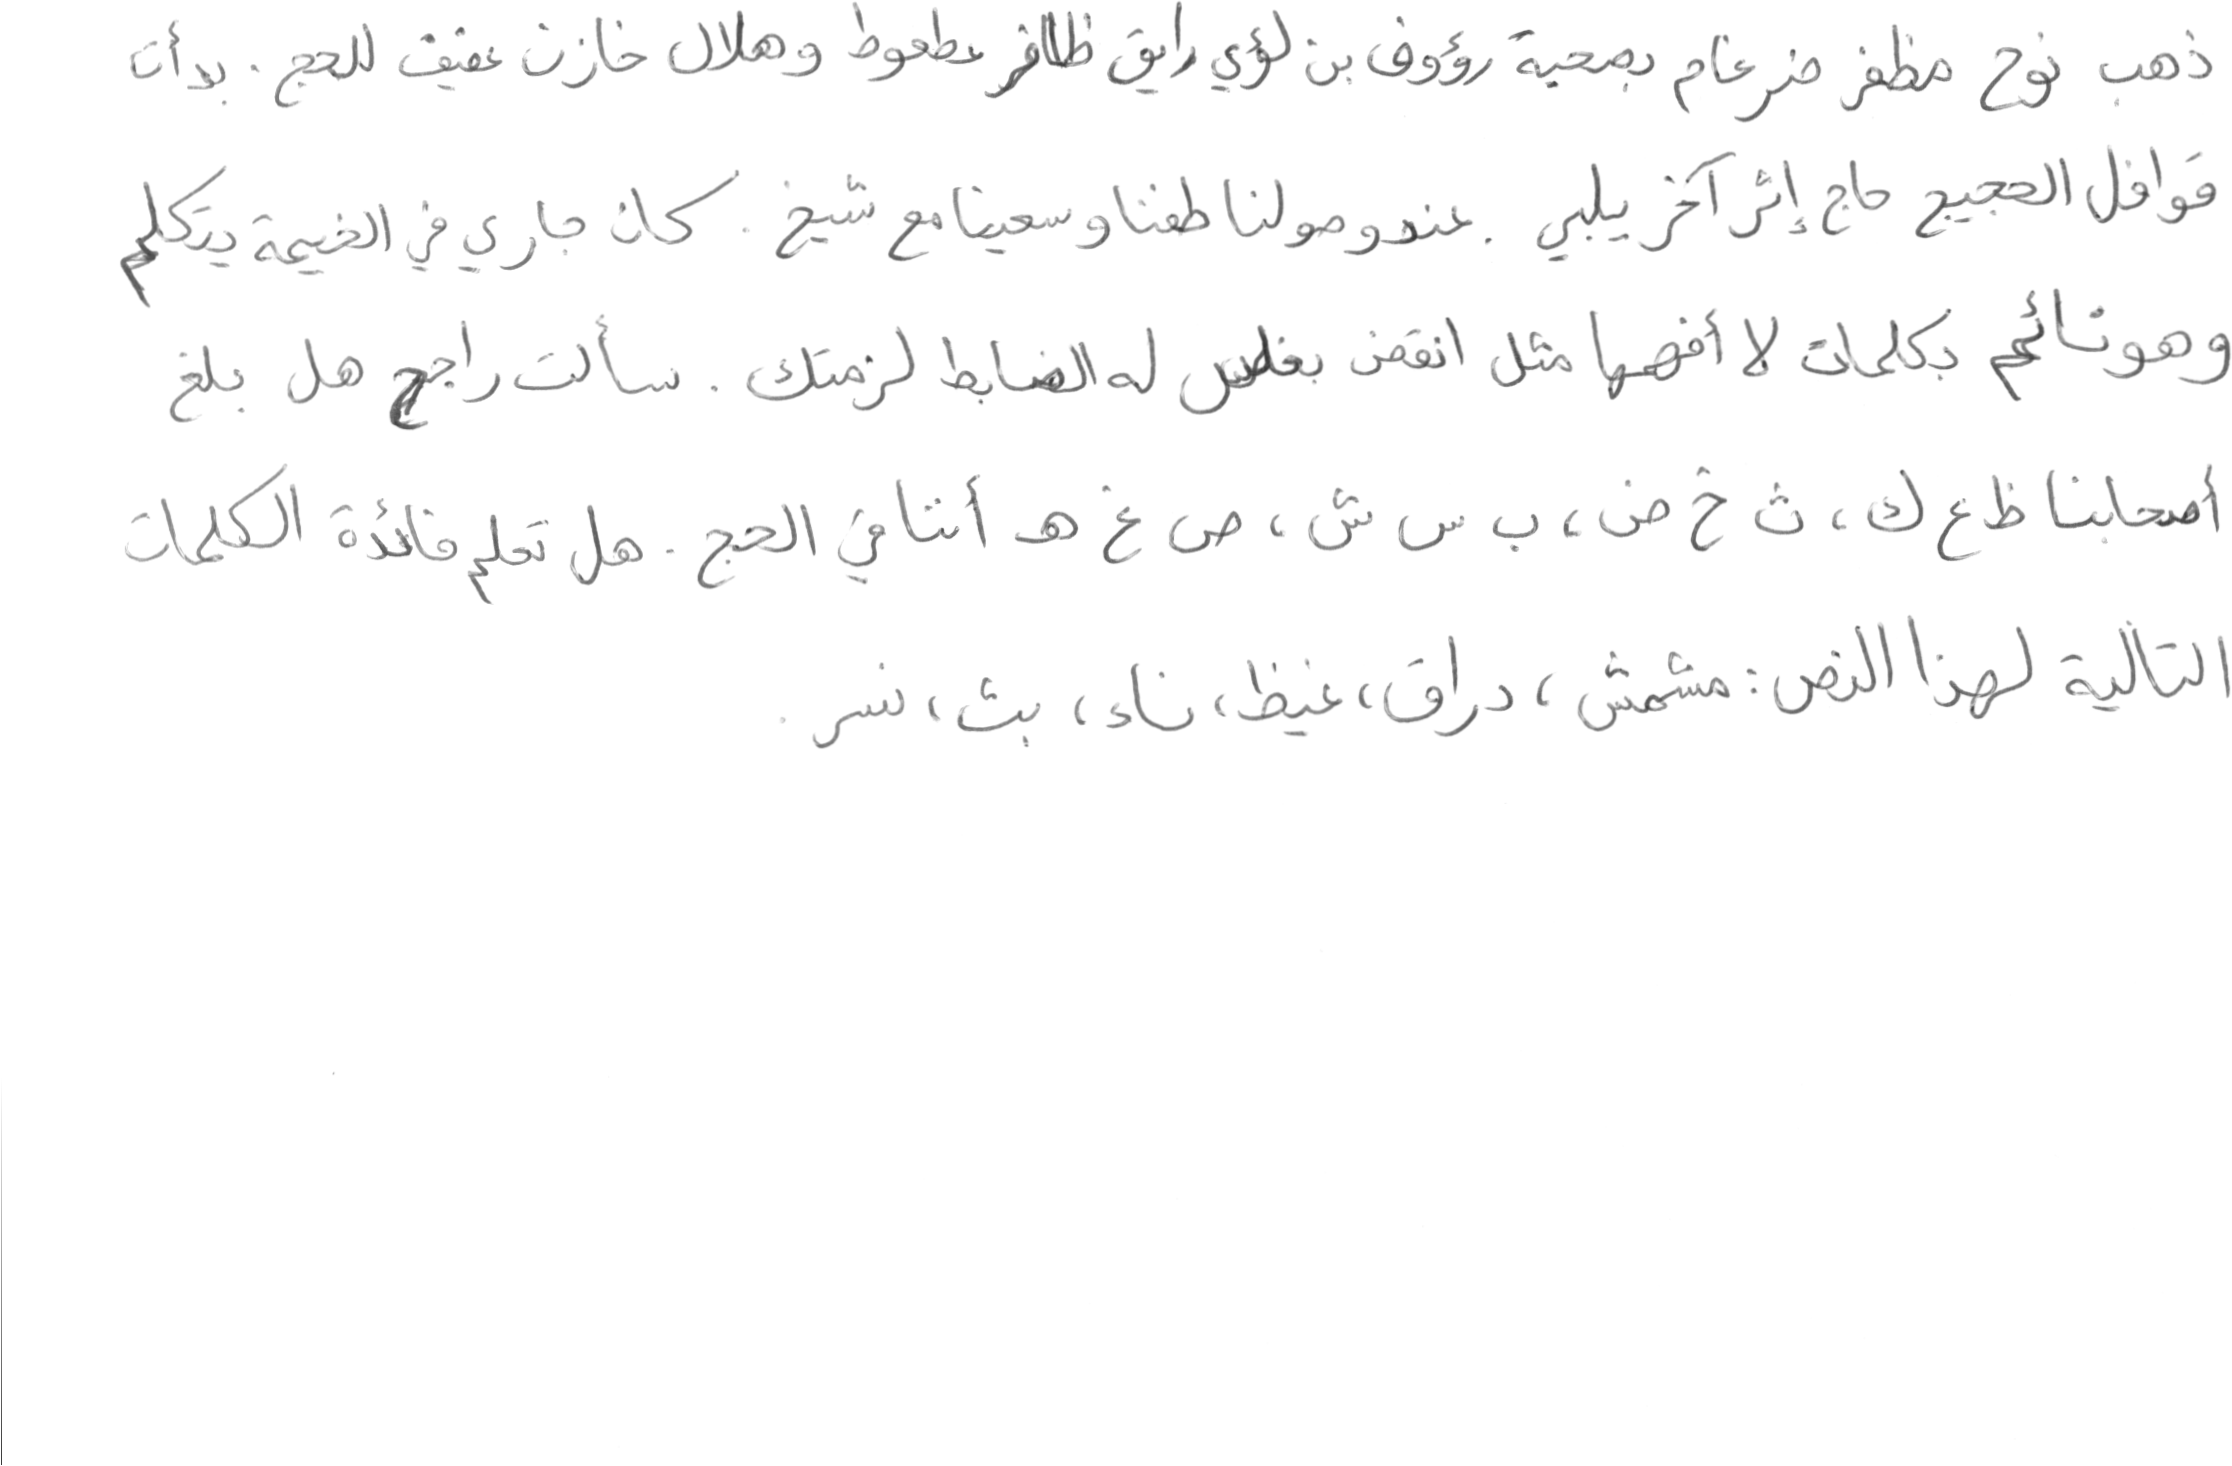 ذهب نوح مظفر ضرغام بصحبة رؤوف بن لؤي رايق ظافر عطعوط وهلال خازن عفيف للحج . بدأت
قوافل الحجيج حاج إثر آخر يلبي . عند وصولنا طفنا وسعينا مع شيخ . كان جاري في الخيمة يتكلم
وهو نائم بكلمات لا أفهمها مثل انقض بغلس له الضابط لزمتك . سألت راجح هل بلغ
أصحابنا ظ ع ك ، ث خ ض ، ب س ش ، ص غ هـ أننا في الحج . هل تعلم فائدة الكلمات
التالية لهذا النص : مشمش ، دراق ، غيظ ، ناء ، بث ، نسر .